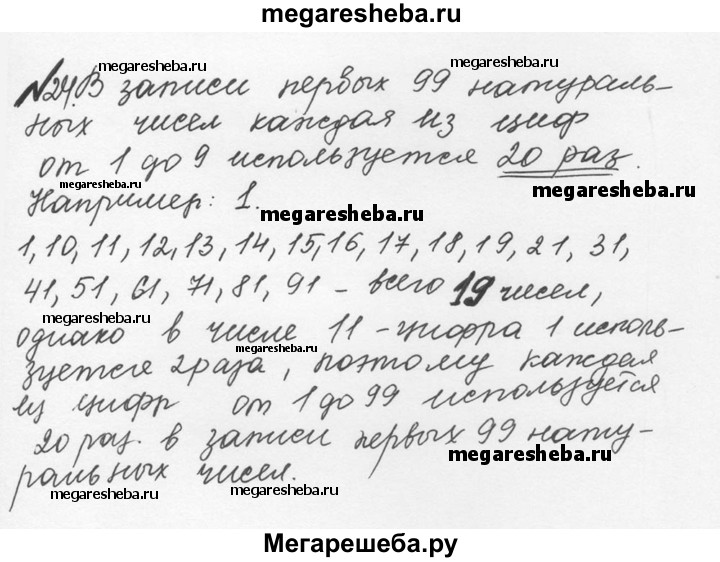 megaresheba.ru
megaresheba.ru
megaresheba.ru
№24. В записи первых 99 натураль-
ных чисел каждая из цифр
от 1 до 9 используется 20 раз.
megaresheba.ru
megaresheba.ru
Например: 1.
megaresheba.ru
1, 10, 11, 12, 13, 14, 15, 16, 17, 18, 19, 21, 31,
41, 51, 61, 71, 81, 91 - всего 19 чисел,
megaresheba.ru
однако в числе 11 - цифра 1 исполь-
megaresheba.ru
зуется 2 раза, поэтому каждая
из цифр от 1 до 99 используется
20 раз. в записи первых 99 нату-
megaresheba.ru
ральных чисел.
megaresheba.ru
megaresheba.ru
Мегарешеба.ру